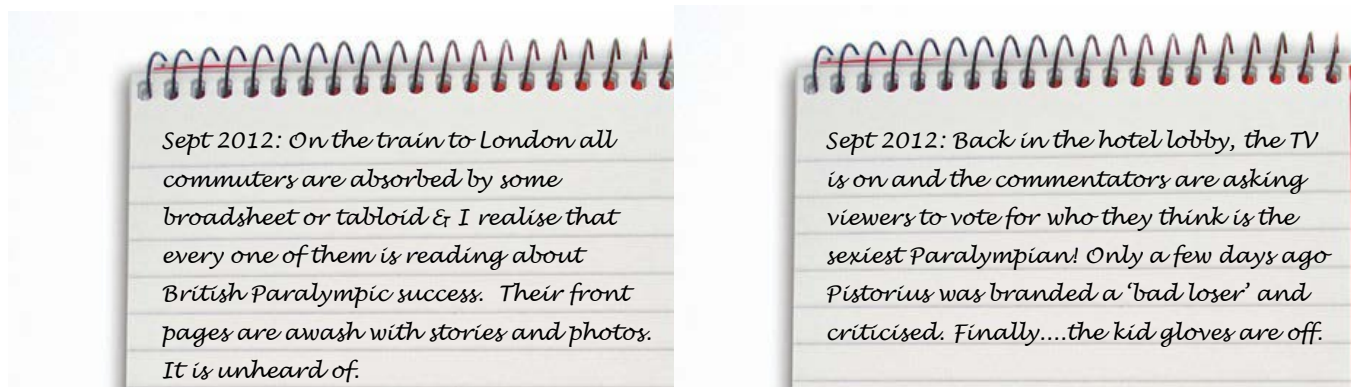 Sept 2012: On the train to London all
commuters are absorbed by some
broadsheet or tabloid & I realise that
every one of them is reading about
British Paralympic success. Their front
pages are awash with stories and photos.
It is unheard of.
Sept 2012: Back in the hotel lobby, the TV
is on and the commentators are asking
viewers to vote for who they think is the
sexiest Paralympian! Only a few days ago
Pistorius was branded a ‘bad loser’ and
criticised. Finally....the kid gloves are off.